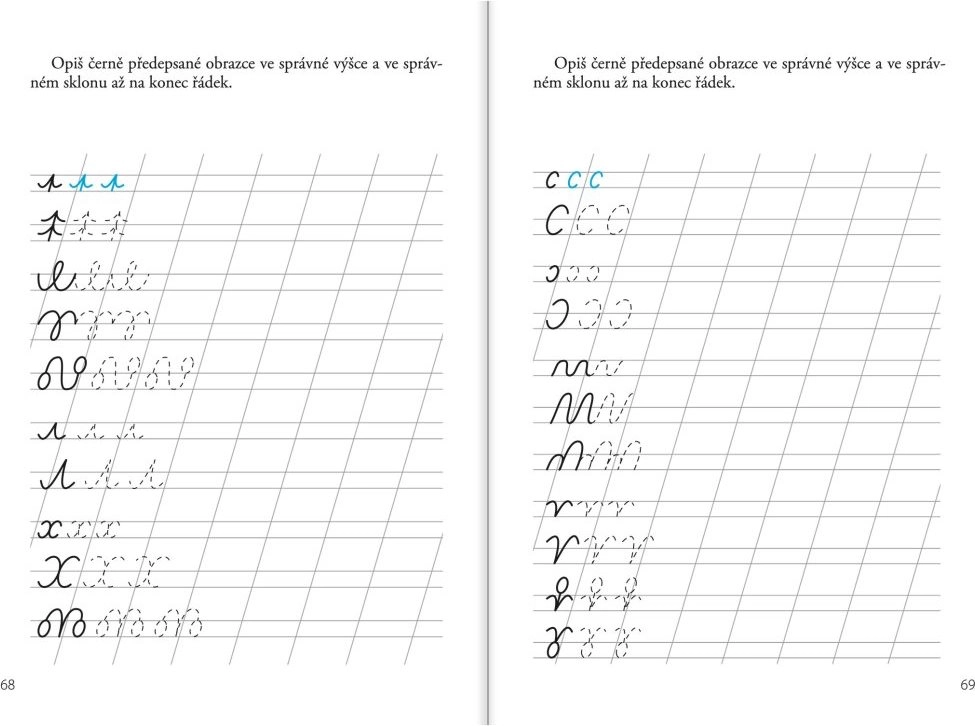 Opiš černě předepsané obrazce ve správné výšce a ve správ-
ném sklonu až na konec řádek.
68
Opiš černě předepsané obrazce ve správné výšce a ve správ-
ném sklonu až na konec řádek.
c c c
C C C
69